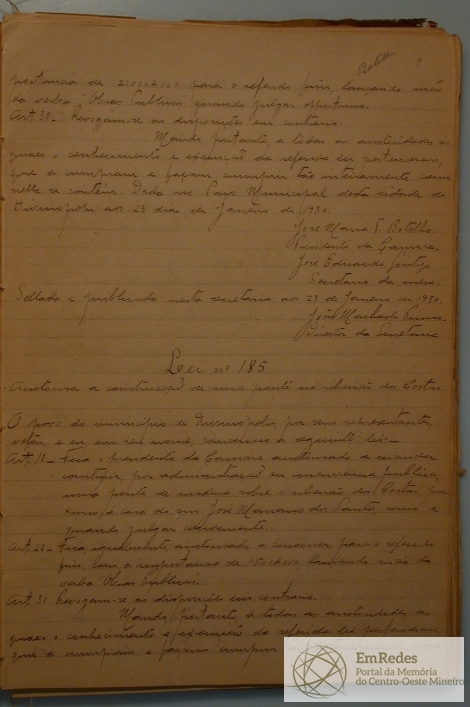 Botelho
portancia de 2:000$000 para o referido fim, lançando mão
da verba Obras Publicas, quando julgar opportuno.
Art. 3º - Revogam-se as disposições em contrario.
Mando, portanto, a todas as autoridades as
quaes o conhecimento e execução da referida lei pertencerem,
que a cumpram e façam cumprir tão inteiramente como
nella se contém. Dada no Paço Municipal desta cidade de
Divinopolis aos 23 dias de Janeiro de 1930.
José Maria T. Botelho.
Presidente da Camara.
José Eduardo
Secretario da mesa.
Sellada e publicada nesta secretaria aos 23 de Janeiro de 1930.
João Machado
Director da Secretaria
Lei nº 185
Autorisa a construcção de uma ponte no ribeirão do Costas
O povo do municipio de Divinopolis, por seus representantes,
votou, e eu em seu nome, sancciono a seguinte lei:-
Art. 1º - Fica o presidente da Camara auctorisado a mandar
construir, por administração ou concurrencia publica,
uma ponte de madeira sobre o ribeirão dos Costas, pro-
ximo/a casa do snr José Marianno dos Santos, como e
quando julgar conveniente.
Art. 2º - Fica igualmente auctorisado a concorrer para o referido
fim, com a importancia de lançando mão da
verba Obras Publicas.
Art. 3º Revogam-se as disposições em contrario.
Mando, portanto, a todas as auctoridades as
quaes o conhecimento e execução da referida lei pertencerem
que a cumpram e façam cumprir
EmRedes
Portal da Memória
do Centro-Oeste Mineiro